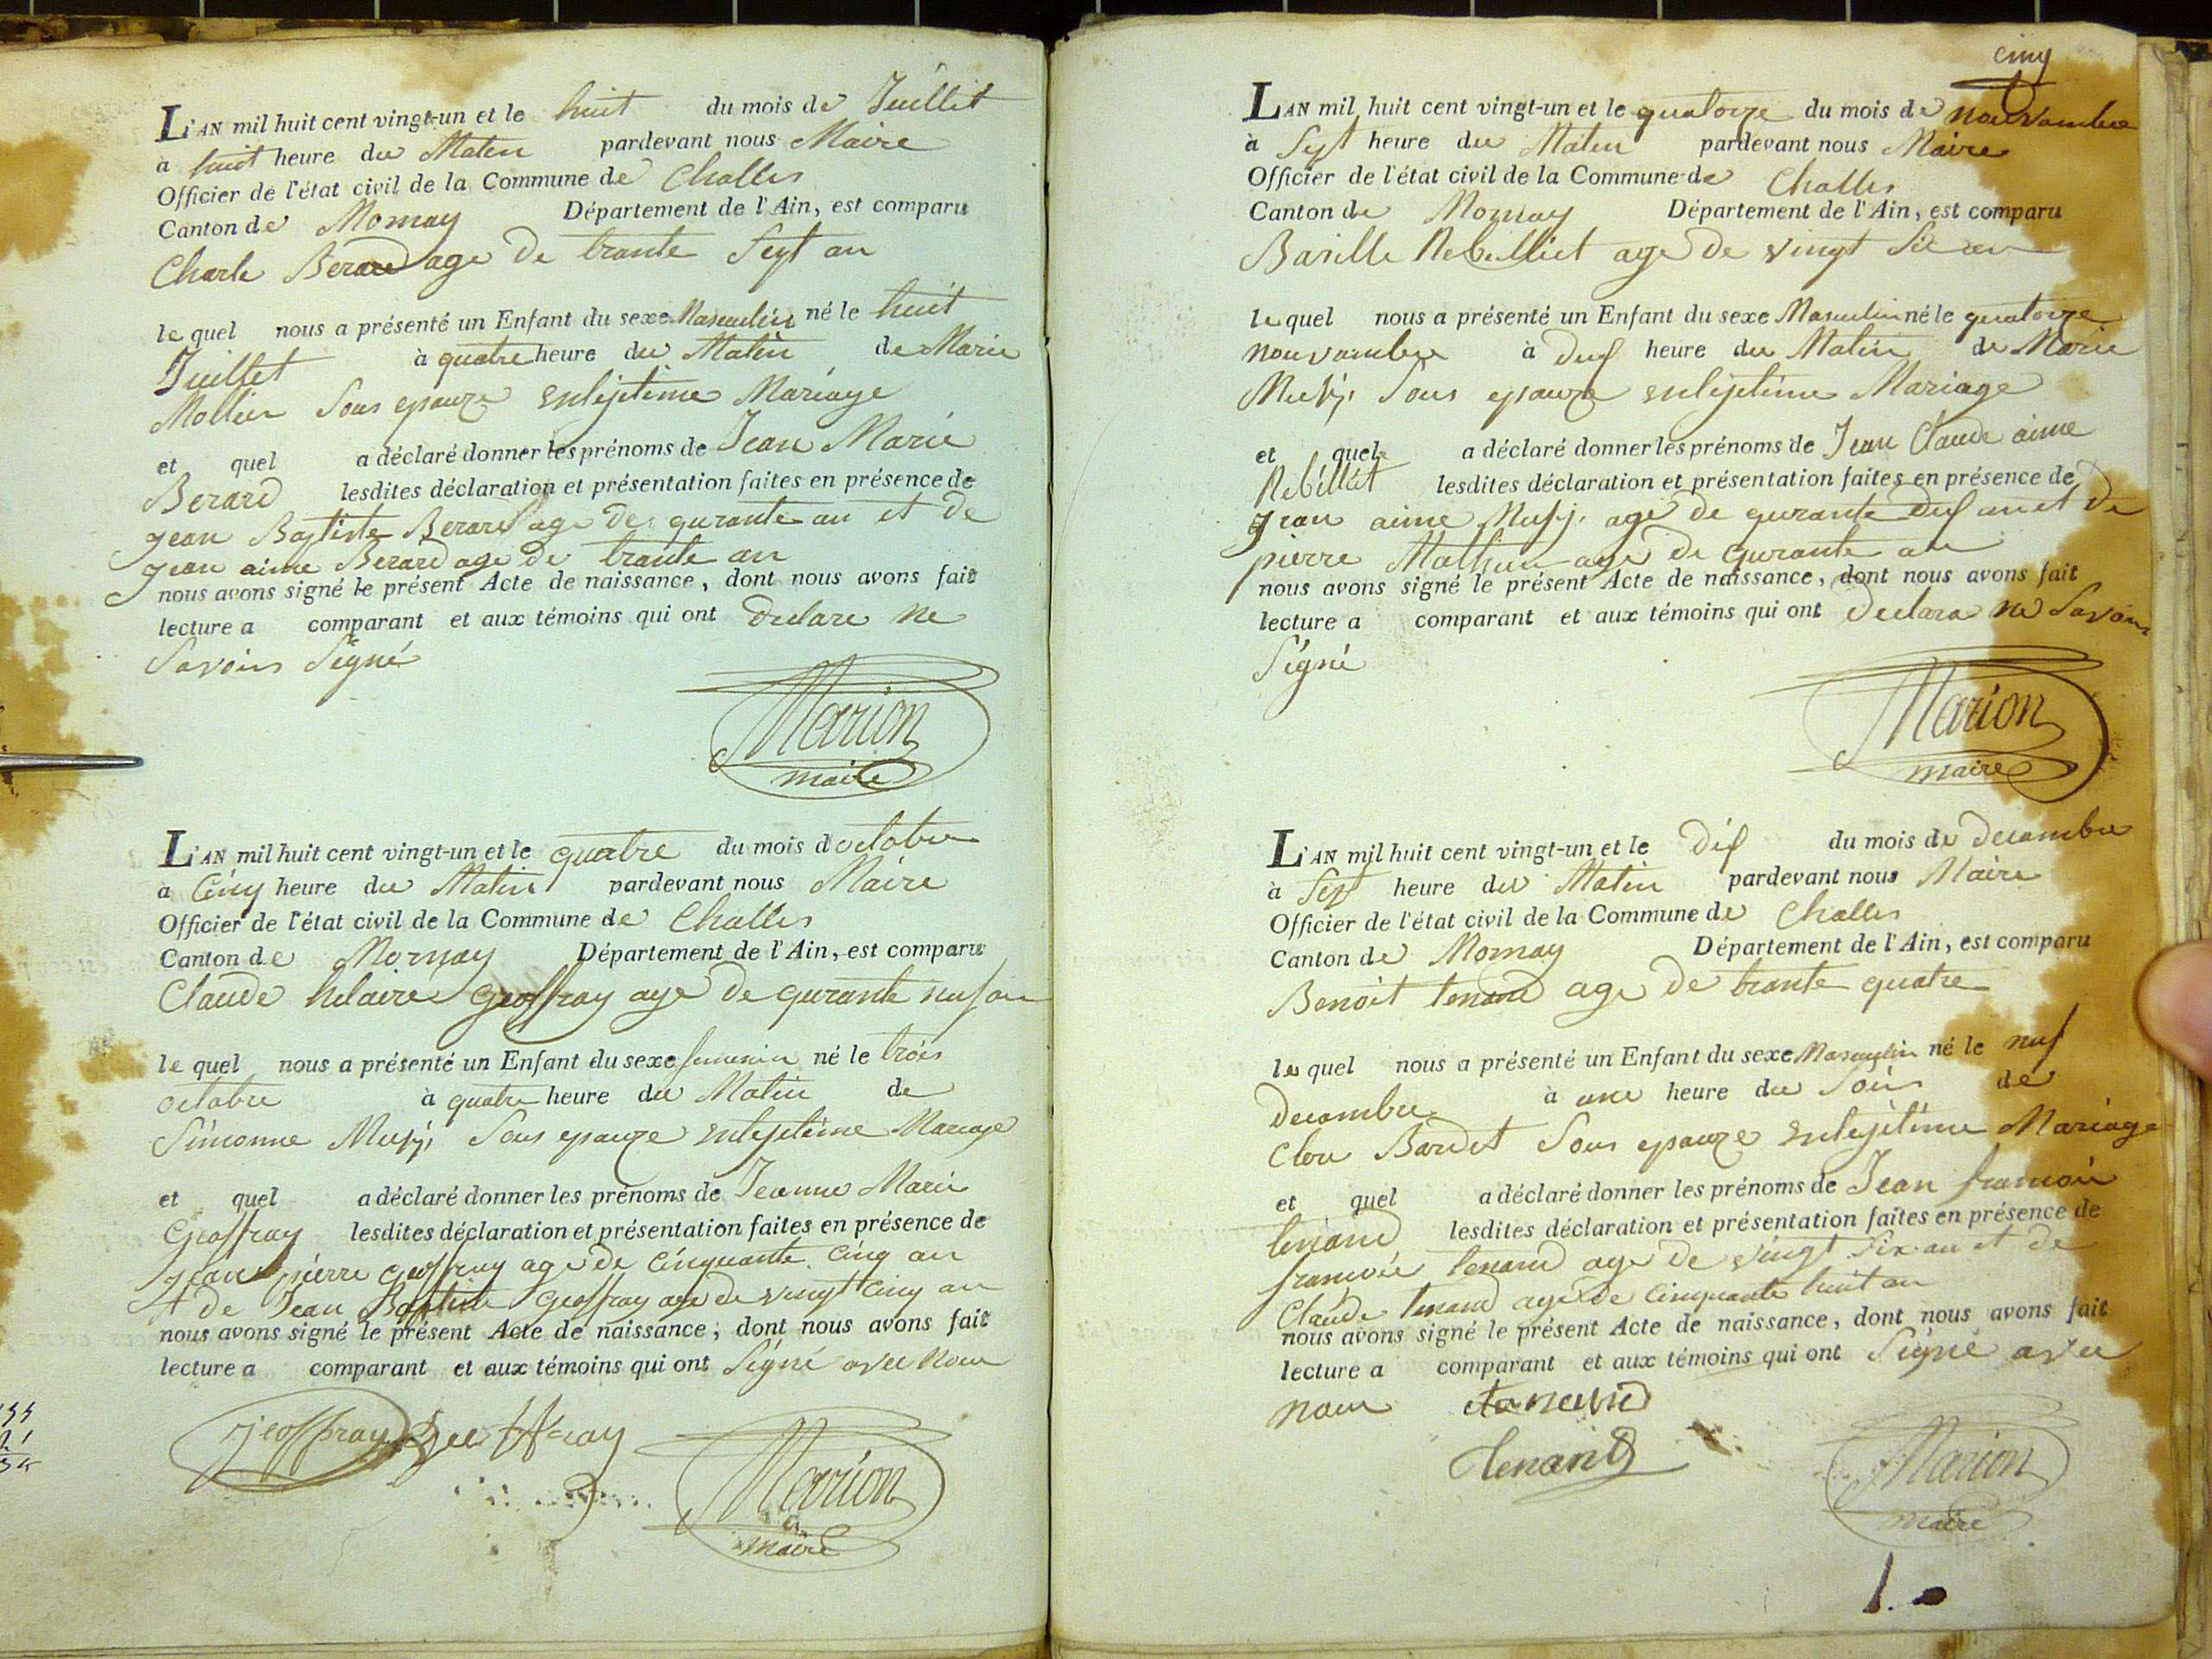 L'AN mil huit cent vingt-un et le huit du mois de Juillet
a huit heure du Maten pardevant nous Maire
Officier de l'état civil de la Commune de Challes
Canton de Mornay Département de l'Ain, est comparu
Charle Berard age de trante Sept an
le quel nous a présenté un Enfant du sexe Masculin né le huit
Juillet à quatre heure du Matin de Marie
Mollier Sous epouze enlejitime Mariage
et quel a déclaré donner les prénoms de Jean Marie
Berard lesdites déclaration et présentation faites en présence de
jean Baptiste Berard age de qurante an et de
jean aime Berard age de trante an
nous avons signé le présent Acte de naissance, dont nous avons fait
lecture a comparant et aux témoins qui ont declare ne
Savoirs Signé
Marion
maire
L'AN mil huit cent vingt-un et le quatre du mois d octobre
a Cinq heure du Matin pardevant nous Maire
Officier de l'état civil de la Commune de Challes
Canton de Mornay Département de l'Ain, est comparu
Claude hilaire Geoffray age de qurante nuf an
le quel nous a présenté un Enfant du sexe femenin né le trois
octobre à quatre heure du Matin de
Simonne Sous epouze enlejitime Mariage
et quel a déclaré donner les prénoms de Jeanne Marie
Geoffray lesdites déclaration et présentation faites en présence de
jean pierre Geoffray age de Cinquante Cinq an
et de Jean Baptiste Geoffray age de vingt Cinq an
nous avons signé le présent Acte de naissance, dont nous avons fait
lecture a comparant et aux témoins qui ont Signé avec nous
jeoffray
Marion
maire
cinq
L'AN mil huit cent vingt-un et le quatorze du mois de nouvambre
à Sept heure du Maten pardevant nous Maire
Officier de l'état civil de la Commune de Challes
Canton de Mornay Département de l'Ain, est comparu
Basille Rebilliet age de vingt Six an
le quel nous a présenté un Enfant du sexe Masculin né le quatorze
nouvambre à deuf heure du Matin de Marie
Sous epouze enlejitime Mariage
et quel a déclaré donner les prénoms de Jean Claude aime
Rebilliet lesdites déclaration et présentation faites en présence de
jean aime age de qurante deuf an et de
pierre Mathieu age de qurante an
nous avons signé le présent Acte de naissance, dont nous avons fait
lecture a comparant et aux témoins qui ont declara ne Savoirs
Signé
Marion
maire
L'AN mil huit cent vingt-un et le dif du mois de decambre
à Sept heure du Matin pardevant nous Maire
Officier de l'état civil de la Commune de Challes
Canton de Mornay Département de l'Ain, est comparu
Benoit tenand age de trante quatre
le quel nous a présenté un Enfant du sexe Masculin né le nuf
decambre à une heure du Soir de
Bardet Sous epouze enlejitime Mariage
et quel a déclaré donner les prénoms de Jean francois
tenand lesdites déclaration et présentation faites en présence de
francois tenand age de vingt Six an et de
Claude tenand age de Cinquante huit an
nous avons signé le présent Acte de naissance, dont nous avons fait
lecture a comparant et aux témoins qui ont Signé avec
nous
tenand
Marion
maire